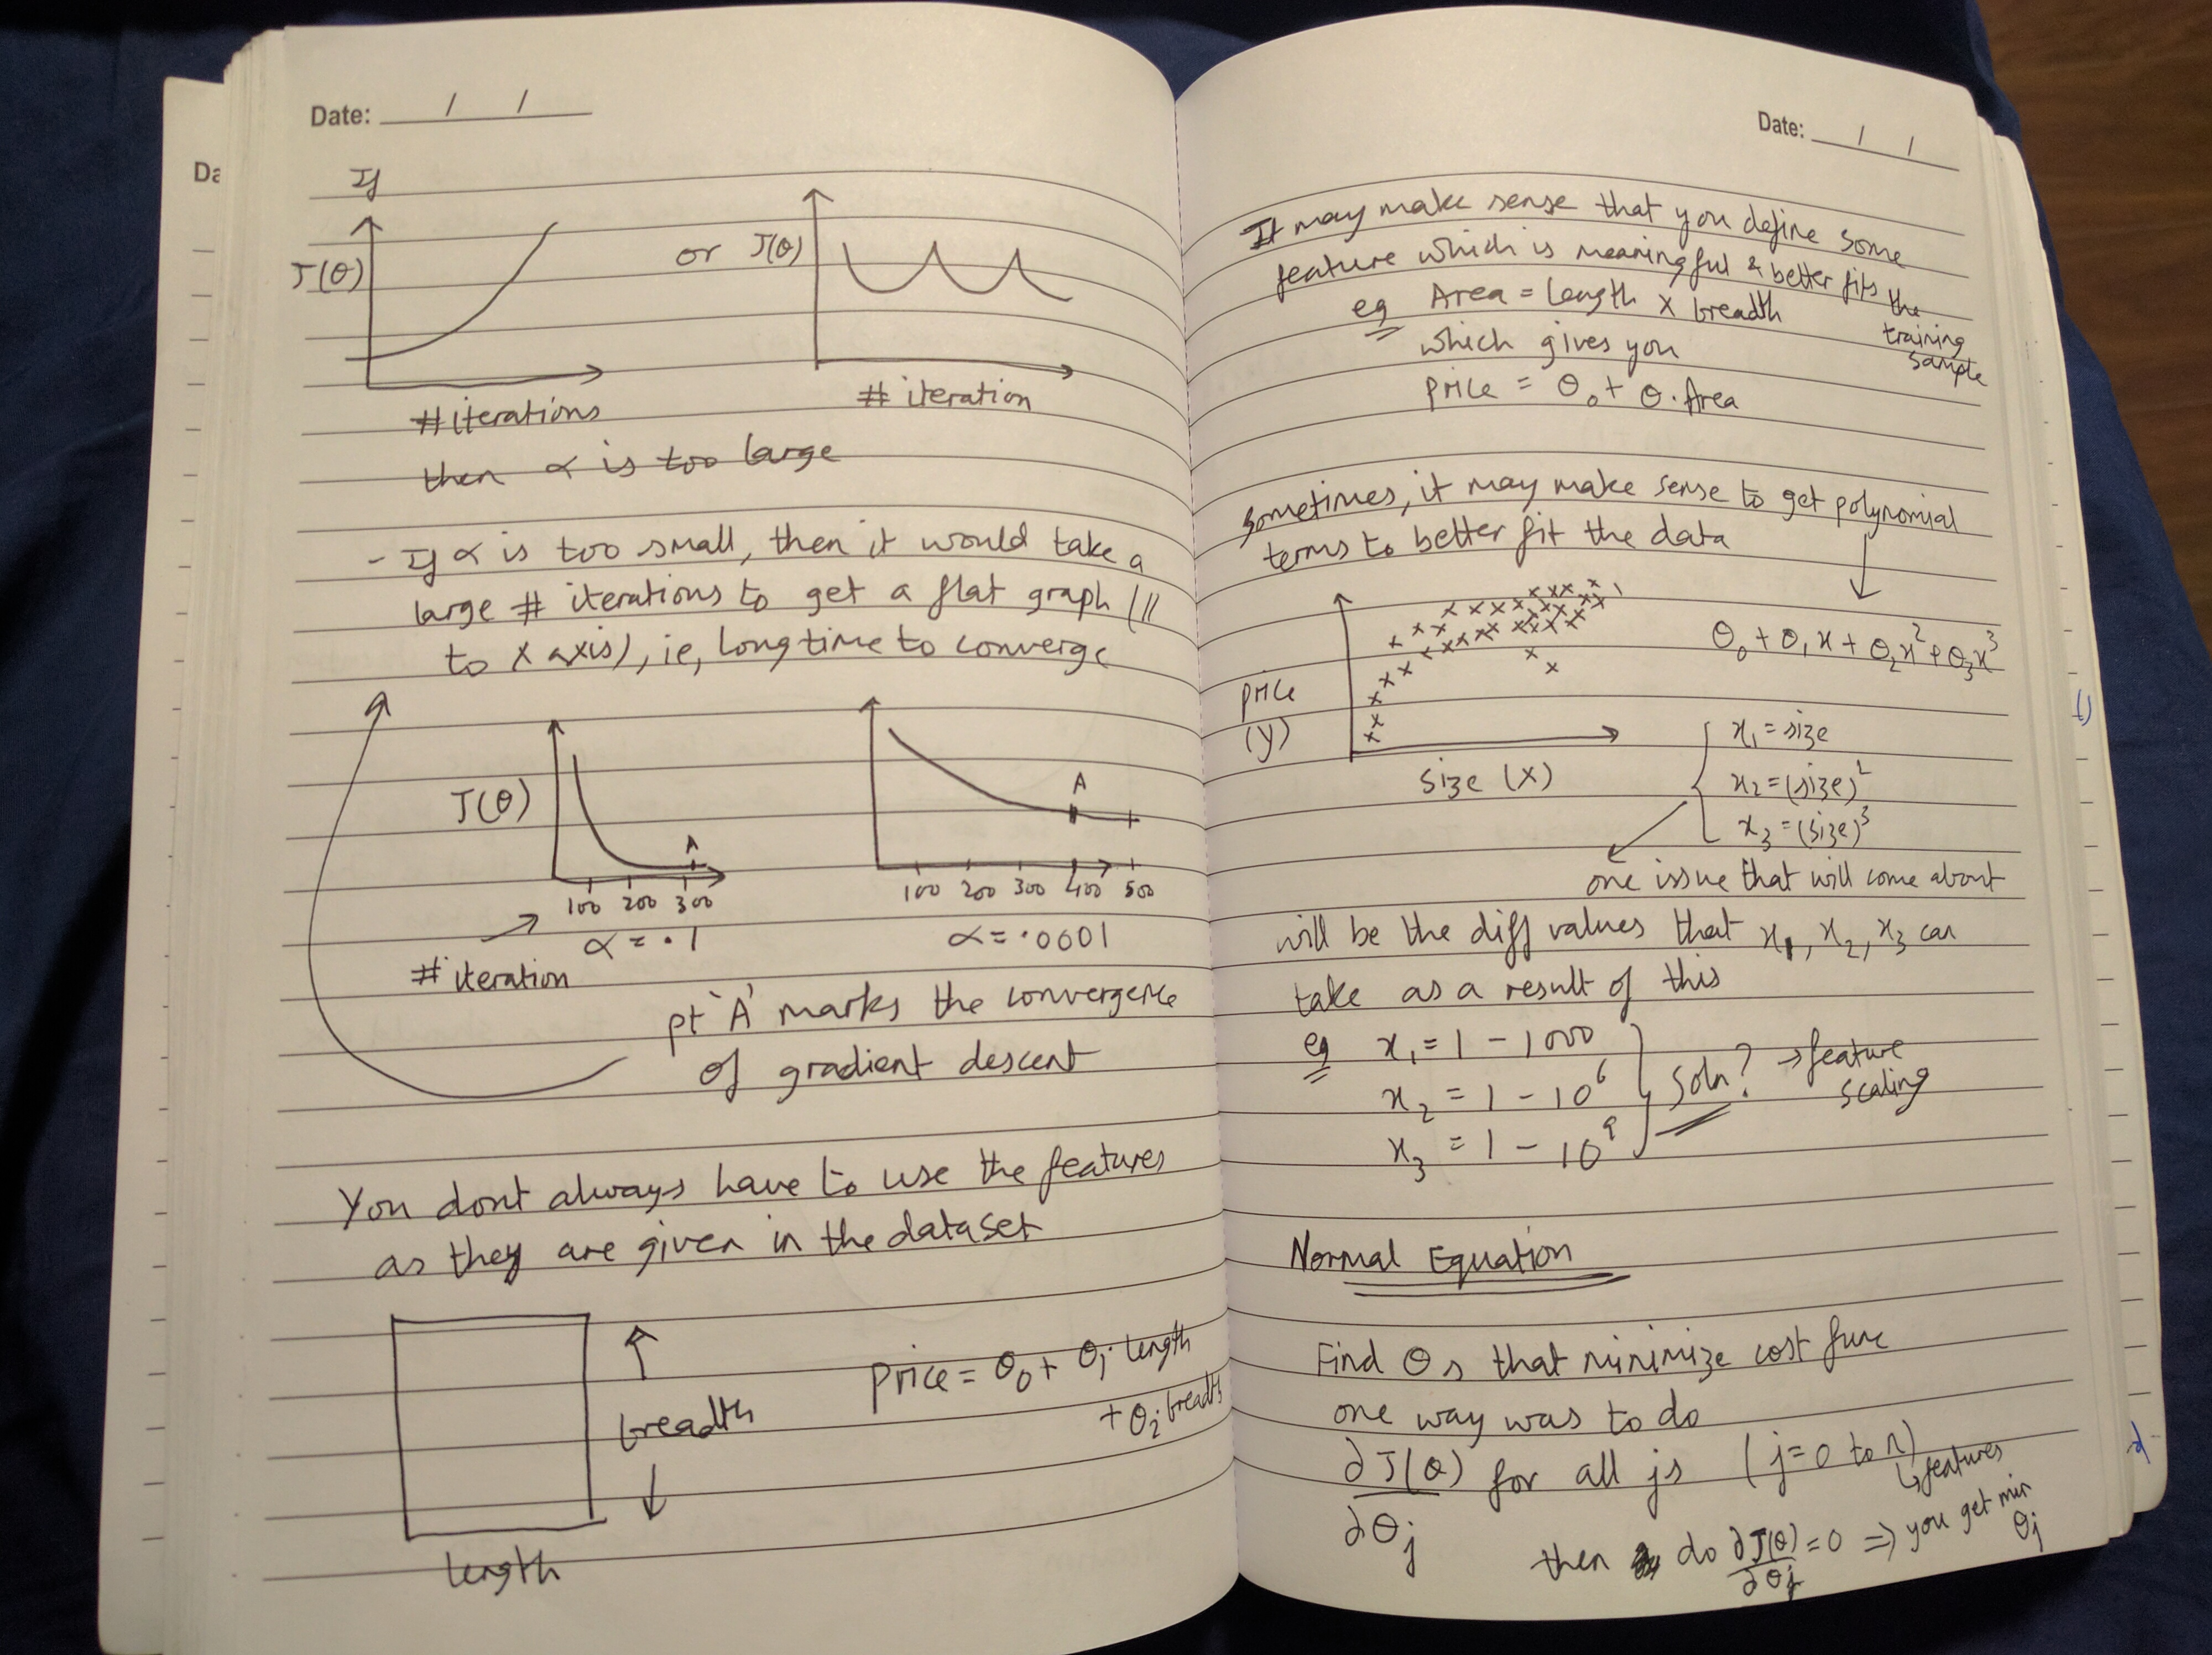 Date: / /
If
J(θ)
# iterations
or J(θ)
# iteration
then α is too large
- If α is too small, then it would take a
large # iterations to get a flat graph (||
to X axis), ie, long time to converge
J(θ)
A
100 200 300
α = .1
# iteration
A
100 200 300 400 500
α = .0001
pt 'A' marks the convergence
of gradient descent
You dont always have to use the features
as they are given in the dataset
breadth
length
Price = θ₀ + θ₁· length
+ θ₂· breadth
Date: / /
It may make sense that you define some
feature which is meaningful & better fits the
training
sample
eg Area = length x breadth
which gives you
Price = θ₀ + θ. Area
sometimes, it may make sense to get polynomial
terms to better fit the data
θ₀ + θ₁x + θ₂x² + θ₃x³
price
(y)
size (x)
x₁ = size
x₂ = (size)²
x₃ = (size)³
one issue that will come about
will be the diff values that x₁, x₂, x₃ can
take as a result of this
eg x₁ = 1 - 1000
x₂ = 1 - 10⁶
x₃ = 1 - 10⁹
Soln? → feature
scaling
Normal Equation
Find θs that minimize cost func
one way was to do
∂J(θ)/∂θj for all js (j=0 to n)
↳ features
then do ∂J(θ)/∂θj = 0 => you get min
θj